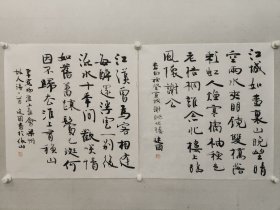 江城如畫裏山晚望晴
空兩水夾明鏡雙橋落
彩虹人煙寒橘柚秋色
老梧桐誰念北樓上臨
風懷謝公
李白秋登宣城謝朓北樓
江漢曾為客相逢
每醉還浮雲一別後
流水十年間歡笑情
如舊蕭疎鬢已斑何
因不歸去淮上有秋山
韋應物淮上喜會梁州
故人